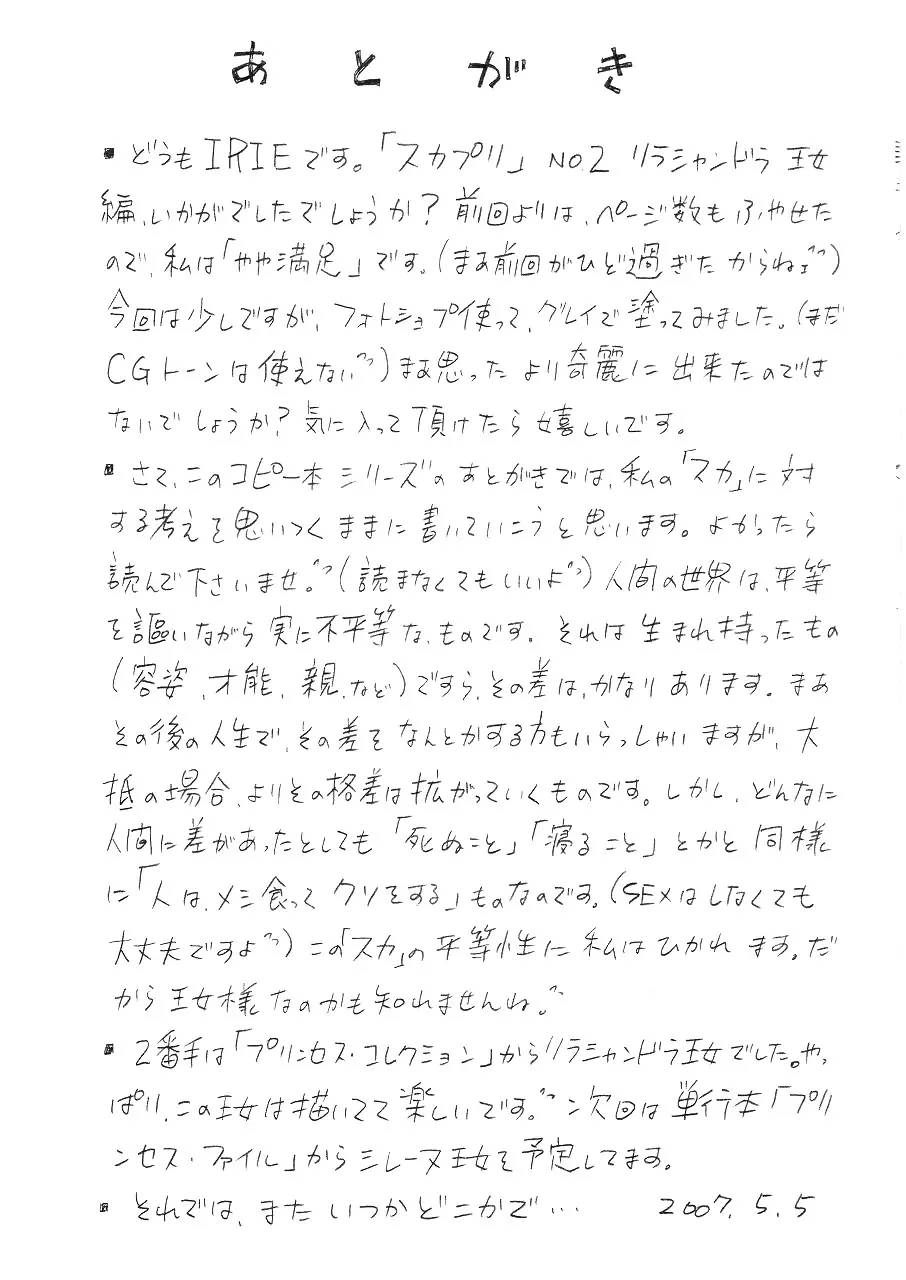 あとがき
▪どうもIRIEです。「スカプリ」NO.2 リラシャンドラ王女
編、いかがでしたでしょうか?前回よりは、ページ数もふやせた
ので、私は「やや満足」です。(まあ前回がひど過ぎたからねェ^^)
今回は少しですが、フォトショップ使って、グレイで塗ってみました。(まだ
CGトーンは使えない^^)まあ思ったより奇麗に出来たのでは
ないでしょうか?気に入って頂けたら嬉しいです。
▪さて、このコピー本シリーズのあとがきでは、私の「スカ」に対
する考えを思いつくままに書いていこうと思います。よかったら
読んで下さいませ。^^(読まなくてもいいよ^^)人間の世界は、平等
を謳いながら実に不平等な、ものです。それは生まれ持ったもの
(容姿、才能、親、など)ですら、その差は、かなりあります。まあ
その後の人生で、その差をなんとかする方もいらっしゃいますが、大
抵の場合、よりその格差は拡がっていくものです。しかし、どんなに
人間に差があったとしても「死ぬこと」「寝ること」とかと同様
に「人は、メシ食ってクソをする」ものなのです。(SEXはしなくても
大丈夫ですよ^^)この「スカ」の平等性に私はひかれます。だ
から王女様なのかも知れませんね。^^
▪2番手は「プリンセス・コレクション」からリラシャンドラ王女でした。やっ
ぱり、この王女は描いてて楽しいです。^^次回は単行本「プリ
ンセス・ファイル」からミレーヌ王女を予定してます。
▪それでは、またいつかどこかで… 2007.5.5